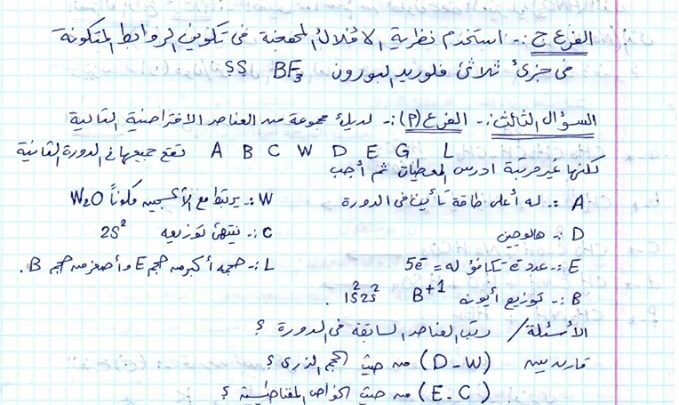 الفرع ج :- استخدم نظرية الافلاك المهجنة في تكوين الروابط المتكونة
في جزئ ثلاثي فلوريد البورون BF₃ SS
السؤال الثالث :- الفرع (P) :- لديك مجموعة من العناصر الافتراضية التالية
A B C W D E G L تقع جميعها في الدورة الثانية
لكنها غير مرتبة ادرس المعطيات ثم أجب
A :- له أعلى طاقة تأين في الدورة W :- يرتبط مع الأكسجين مكوناً W₂O
D :- هالوجين C :- ينتهي توزيعه 2S²
E :- عدد تكافؤ له = 5e̅ L :- حجمه أكبر من حجم E وأصغر من حجم B .
B :- توزيع أيونه B⁺¹ 1S² 2S² .
الأسئلة / رتب العناصر السابقة في الدورة ؟
قارن بين (D-W) من حيث الحجم الذري ؟
(E.C) من حيث الخواص المغناطيسية ؟